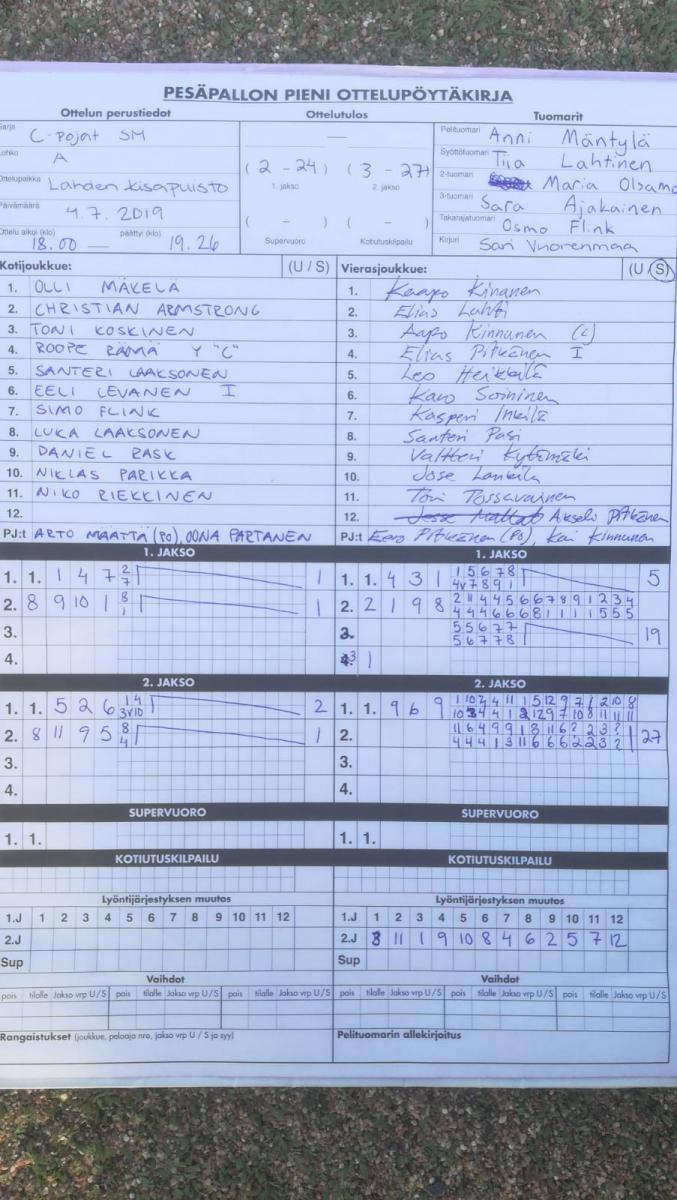 PESÄPALLON PIENI OTTELUPÖYTÄKIRJA
Ottelun perustiedot Ottelutulos Tuomarit
Sarja C-pojat SM
Lohko A
Ottelupaikka Lahden kisapuisto
Päivämäärä 4.7.2019
Ottelu alkoi (klo) päättyi (klo)
18.00 — 19.26
—
(2 - 24) (3 - 27)
1. jakso 2. jakso
( - ) ( - )
Supervuoro Kotiutuskilpailu
Pelituomari Anni Mäntylä
Syöttötuomari Tiia Lahtinen
2-tuomari Maria Olsamo
3-tuomari Sara Ajakainen
Takarajatuomari Osmo Flink
Kirjuri Sari Vuorenmaa
Kotijoukkue: (U / S)
1. OLLI MÄKELÄ
2. CHRISTIAN ARMSTRONG
3. TONI KOSKINEN
4. ROOPE RÄMÄ Y "C"
5. SANTERI LAAKSONEN
6. EELI LEVANEN I
7. SIMO FLINK
8. LUKA LAAKSONEN
9. DANIEL RASK
10. NIKLAS PARIKKA
11. NIKO RIEKKINEN
12.
PJ:t ARTO MÄÄTTÄ (PO), OONA PARTANEN
Vierasjoukkue: (U / S)
1. Kaapo Kinanen
2. Elias Lahti
3. Aapo Kinnunen (C)
4. Elias Pitkänen I
5. Leo Heikkilä
6. Karo Soininen
7. Kasperi Inkilä
8. Santeri Pasi
9. Valtteri Kytömäki
10. Jose
11. Toni Tossavainen
12. Akseli Pitkänen
PJ:t Eero Pitkänen (PO), Kai Kinnunen
1. JAKSO
1. 1. 1 4 7 2 1
7
2. 8 9 10 1 8 1
1
3.
4.
1. JAKSO
1. 1. 4 3 1 1 5 6 7 8 5
4v 7 8 9 1
2. 2 1 9 8 2 11 4 4 5 6 6 7 8 9 1 2 3 4
4 4 4 6 6 6 8 1 1 1 1 5 5 5
5 5 6 7 7 19
5 6 7 7 8
3 1
2. JAKSO
1. 1. 5 2 6 1 4 2
3v 10
2. 8 11 9 5 8 1
4
3.
4.
2. JAKSO
1. 1. 9 6 9
2. 27
3.
4.
SUPERVUORO
1. 1.
SUPERVUORO
1. 1.
KOTIUTUSKILPAILU
KOTIUTUSKILPAILU
Lyöntijärjestyksen muutos
1.J 1 2 3 4 5 6 7 8 9 10 11 12
2.J
Sup
Lyöntijärjestyksen muutos
1.J 1 2 3 4 5 6 7 8 9 10 11 12
2.J 3 11 1 9 10 8 4 6 2 5 7 12
Sup
Vaihdot
pois tilalle Jakso vrp U / S pois tilalle Jakso vrp U / S pois tilalle Jakso vrp U / S
Vaihdot
pois tilalle Jakso vrp U / S pois tilalle Jakso vrp U / S pois tilalle Jakso vrp U / S
Rangaistukset (joukkue, pelaaja nro, jakso vrp U / S ja syy)
Pelituomarin allekirjoitus